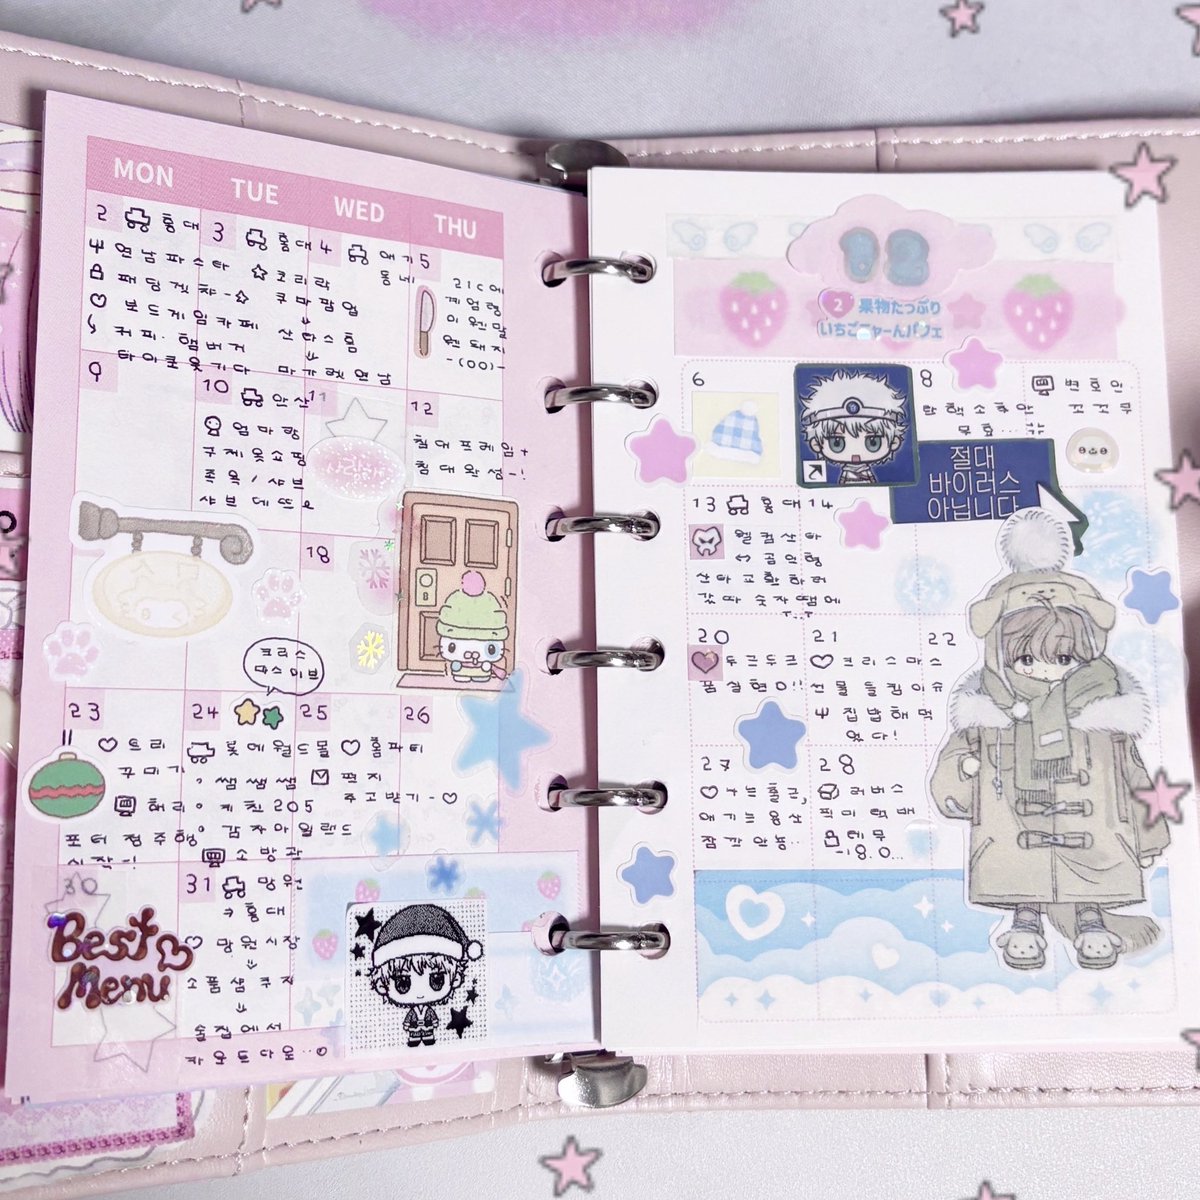 MON TUE WED THU
2 홍대
연남파스타
패딩겟챠-☆
보드게임카페
커피·햄버거
타이쿤웃기다
3 홍대
코리락
쿠마팝업
산타스홈
마가렛연남
4 애기
동네
5
21C에
계엄령
이웬말
웬돼지
-(00)-
9
10 안산
엄마랑
구제옷쇼핑
족욕/샤브
샤브 데뜨
11
12
침대프레임+
침대완성-!
18
크리스
마스이브
23
트리
꾸미기
해리
포터정주행
시작-!
24
롯데월드몰
쌤쌤쌤
키친205
감자아일랜드
소방관
25
홈파티
편지
주고받기-♡
26
30
Best
Menu
31 망원
홍대
망원시장
소품샵쿠지
술집에서
카운트다운··
12
2 果物たっぷり
いちごニャーんパフェ
6
8 변호인
탄핵소추안
꼬꼬무
무효··
절대
바이러스
아닙니다
13 홍대
웰컴산타
곰인형
산타고확하러
갔따 숫자땜에
14
20
두근두근
꿈실현0!!
21
크리스마스
선물들킨이슈
집밥해먹
었다!
22
27
나는출근,
애기는용산
잠깐안뇽··
28
러버스
픽미택배
테무
-18.0...